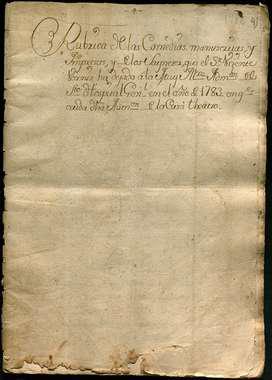 Rubrica de las Comedias, manuscritas, y
Impresas, y de las Saynetes, que el Sr. Vicente
ha dejado a la Ilustre Admon. del
Sto. Hospital Genl. en el año de 1783. en q.e
cuida dha Admon. de la Casa theatro.